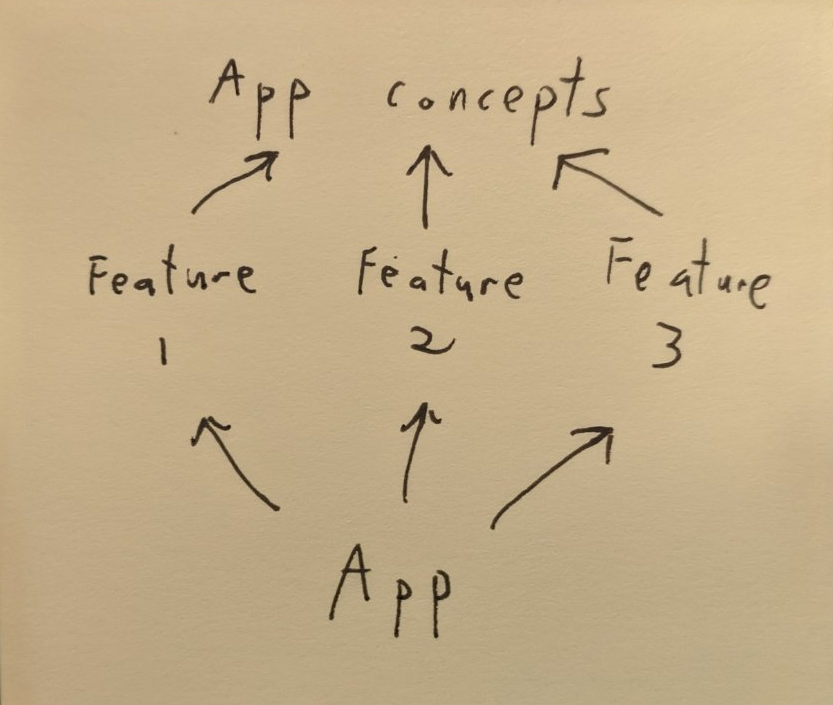 App concepts
Feature Feature Feature
1 2 3
App